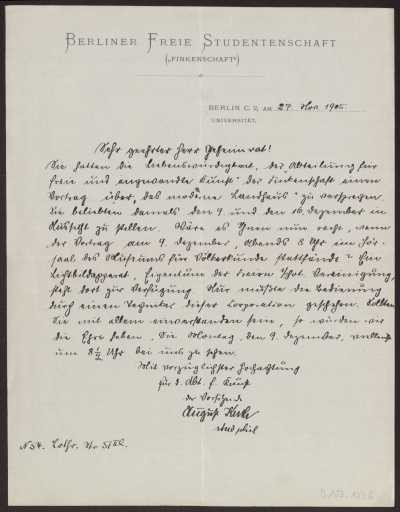 BERLINER FREIE STUDENTENSCHAFT
(„FINKENSCHAFT“)
BERLIN C. 2, AM 27. Nov. 1905.
UNIVERSITÄT.
Sehr geehrter Herr Geheimrat!
Sie hatten die Liebenswürdigkeit, der „Abteilung für
freie und angewandte Kunst“ der Finkenschaft einen
Vortrag über „das moderne Landhaus“ zu versprechen.
Sie beliebten damals den 9. und den 16. Dezember in
Aussicht zu stellen. Wäre es Ihnen nun recht, wenn
der Vortrag am 9. Dezember, Abends 8 Uhr im Hör-
saal des Museums für Völkerkunde stattfände? Ein
Lichtbildapparat, Eigentum der freien Phot. Vereinigung,
steht dort zur Verfügung. Nur müsste die Bedienung
durch einen dieser Corporation geschehen. Sollten
Sie mit allem einverstanden sein, so würden wir
die Ehre haben, Sie Montag, den 9. Dezember,
um 8 1/2 Uhr bei uns zu sehen.
Mit vorzüglichster Hochachtung
für d. Abt. f. Kunst
der Vorsitzende
August
stud. phil.
N 54. Lothr. Str.